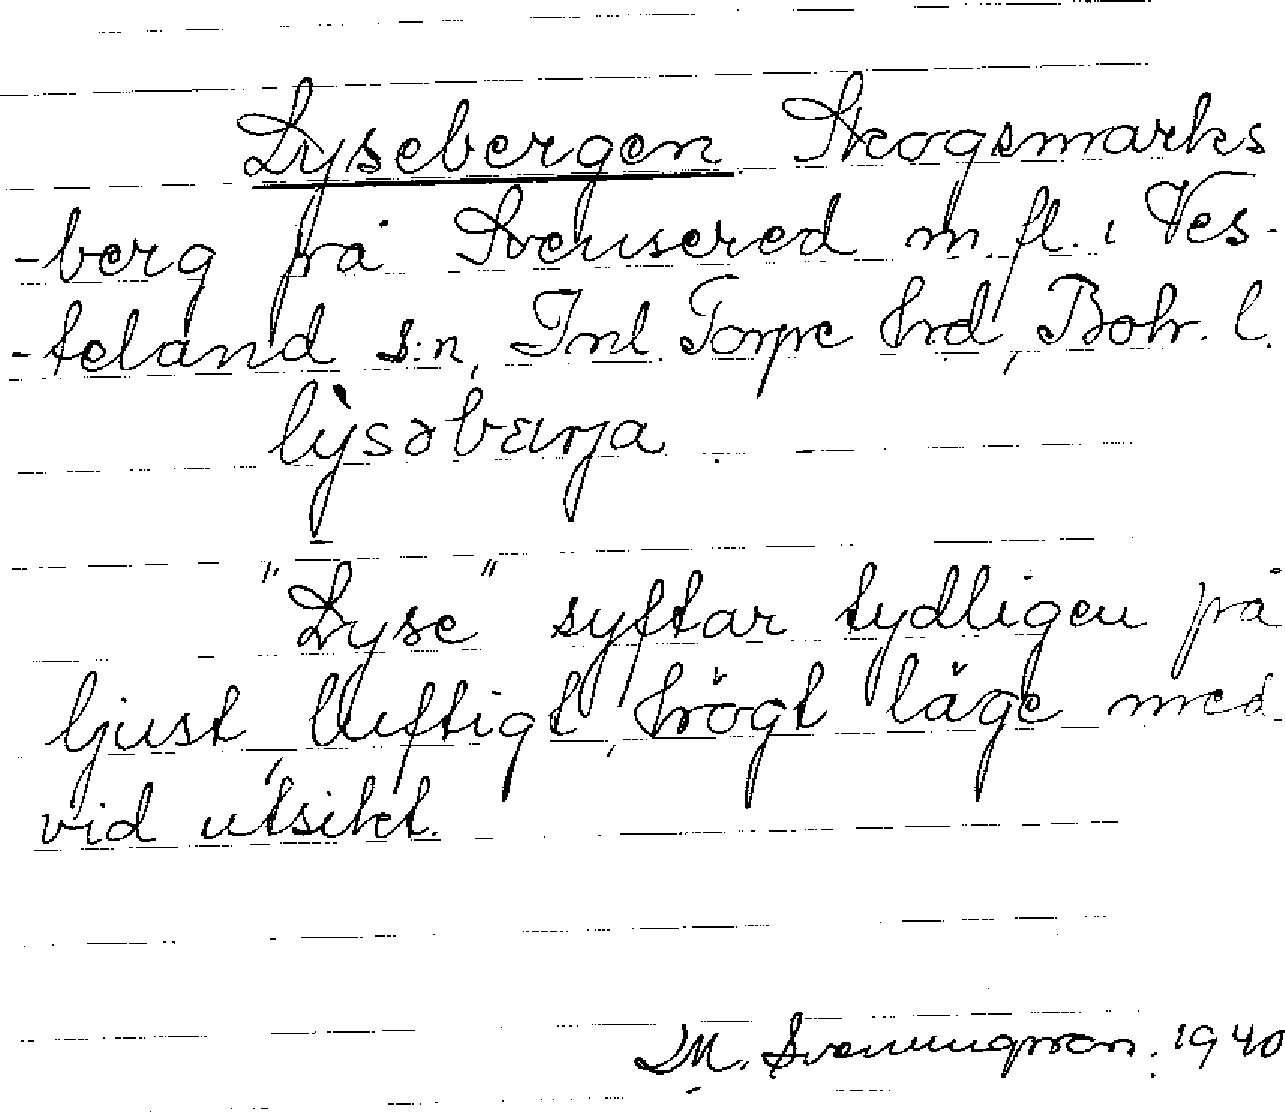 Lysebergen Skogsmarks
-berg på Svensered m. fl. i Ves-
-teland s:n, Inl. Torpe hrd, Boh. l.
lỳsəbærja
"Lyse" syftar tydligen på
ljust, luftigt, högt läge med
vid utsikt.
M. Svenungsson. 1940